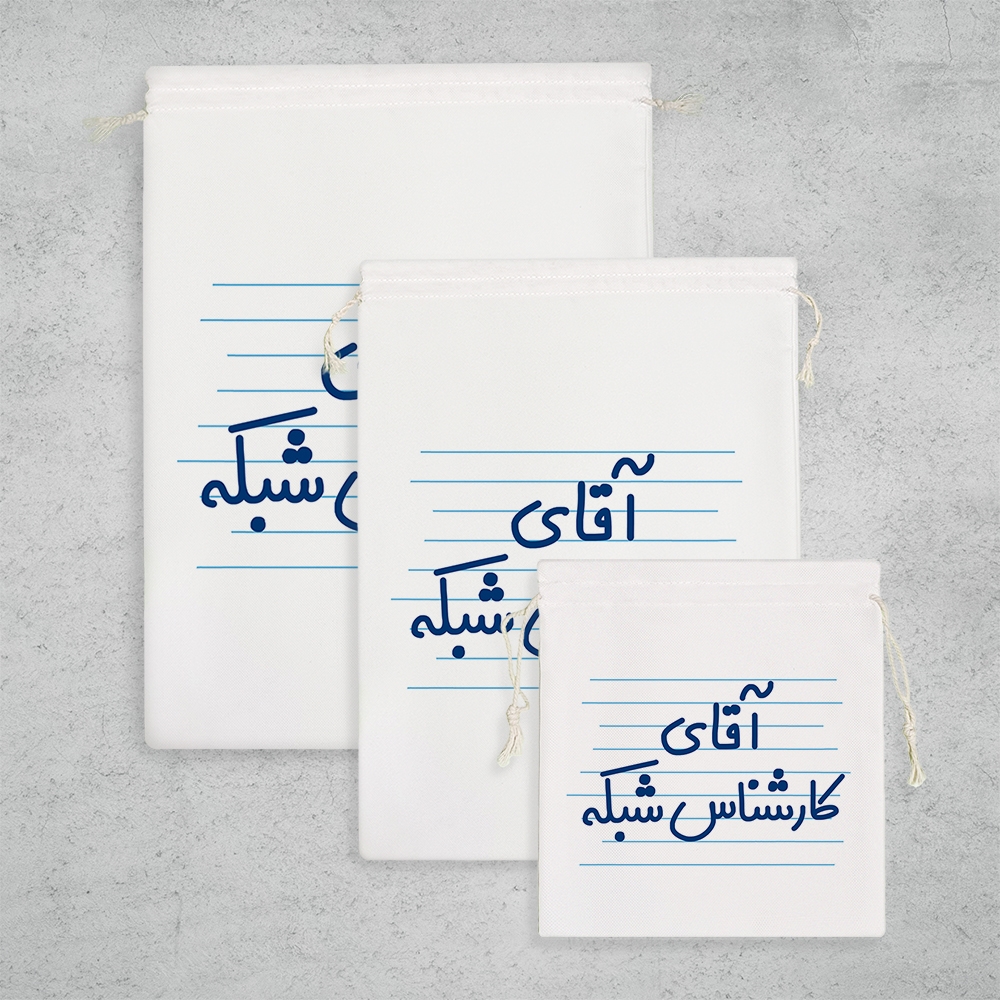 شبکه
آقای
شبکه
آقای
کارشناس شبکه